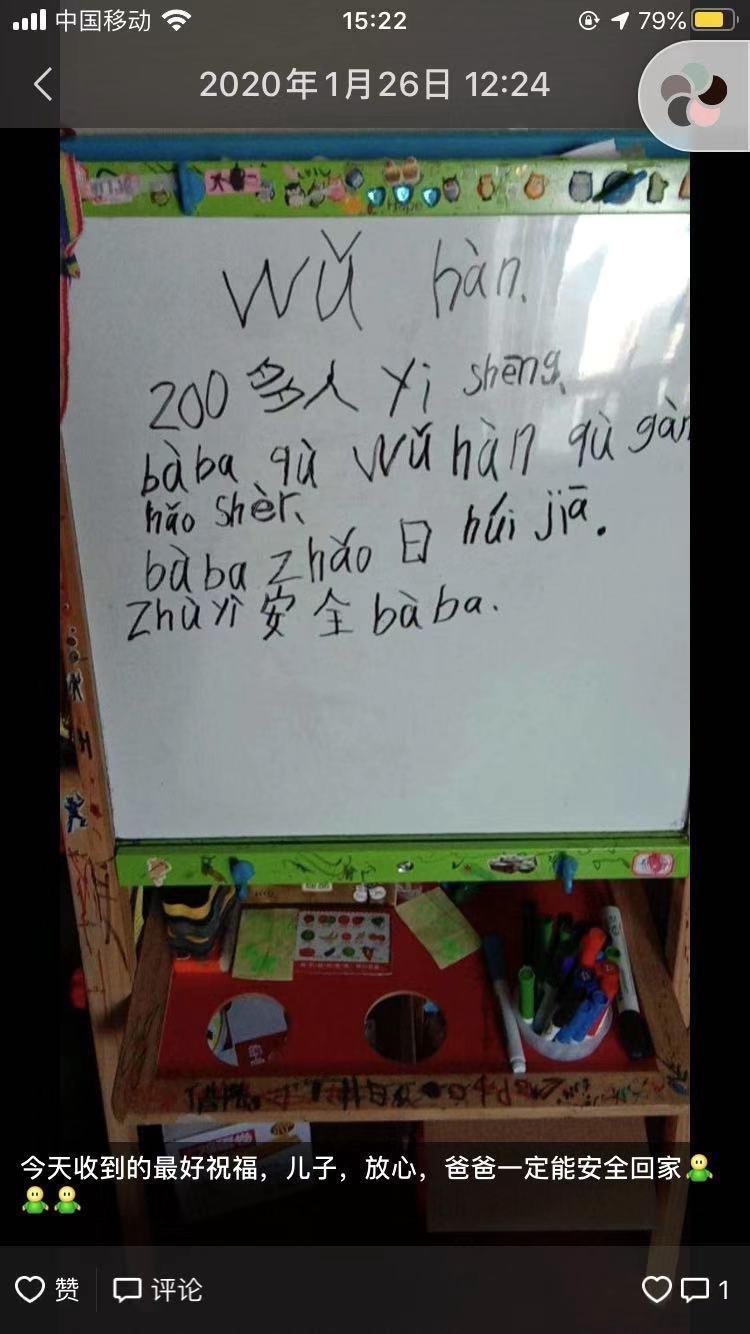 中国移动 15:22 79%
2020年1月26日 12:24
大
Hope
wǔ hàn.
200 多人 yi shēng、
bàba qù wǔhàn qù gàn
hǎo shèr、
bàba zhǎo日 húi jiā.
zhùyì 安全 bàba.
今天收到的最好祝福，儿子，放心，爸爸一定能安全回家
赞 评论 1